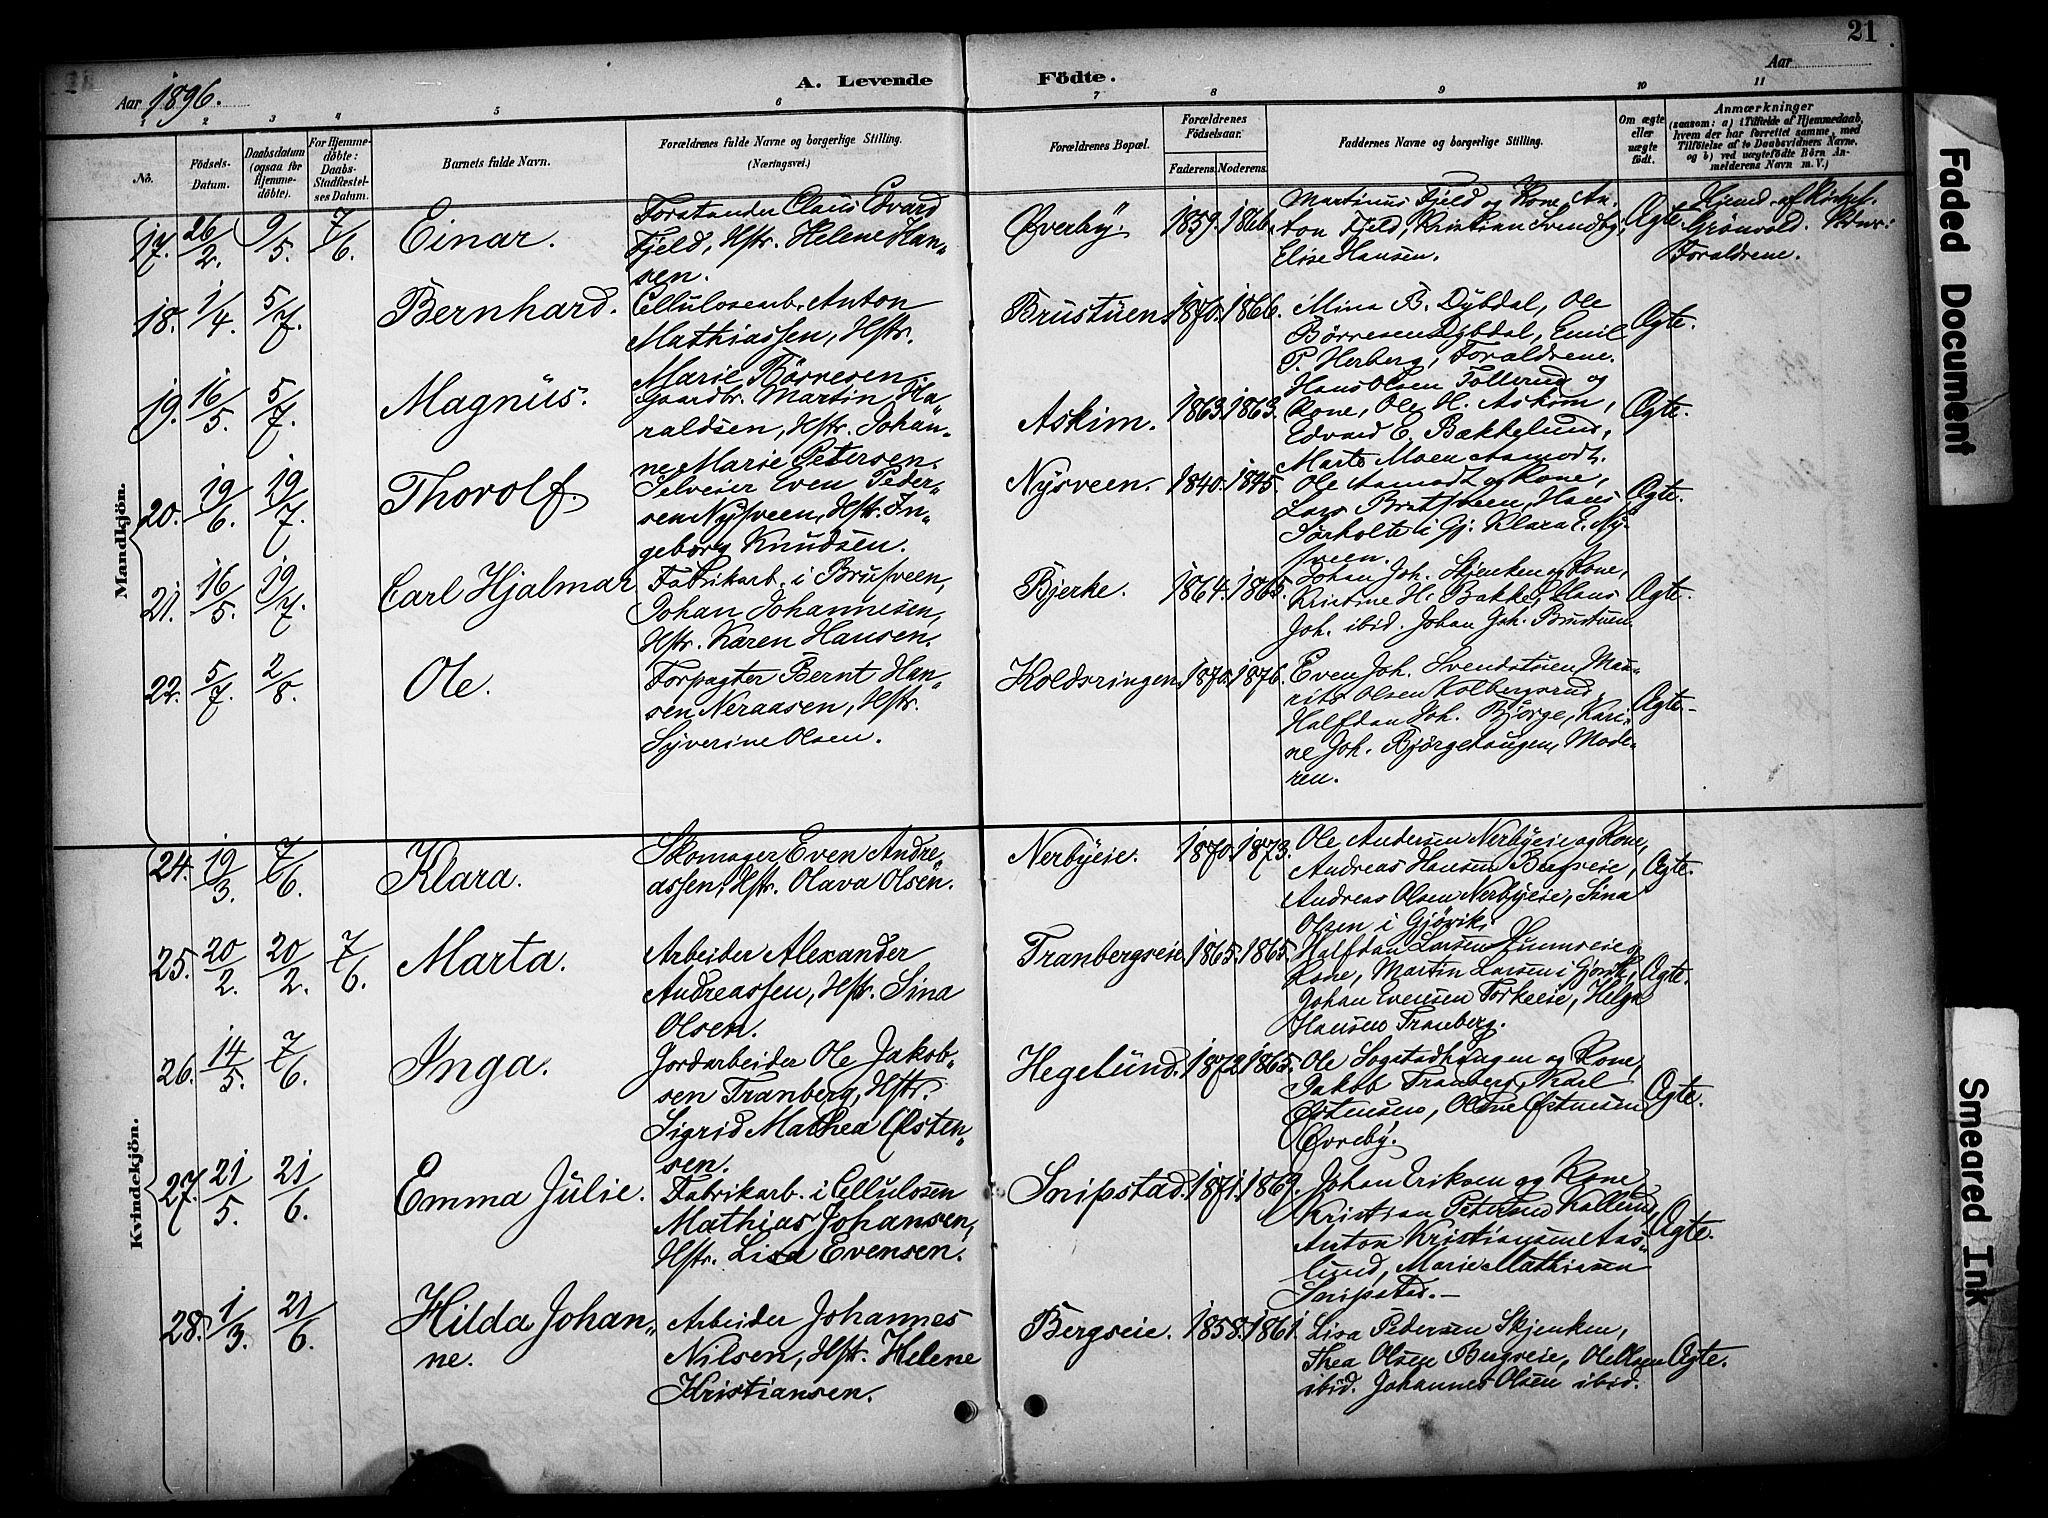 21
Aar 1896.
A. Levende Födte.
Aar
1 2 3 4 5 6 7 8 9 10 11
No.
Födsels-Datum.
Daabsdatum (ogsaa for Hjemme-döbte).
For Hjemme-döbte: Daabs-Stadfæstel-ses Datum.
Barnets fulde Navn.
Forældrenes fulde Navne og borgerlige Stilling. (Næringsvei.)
Forældrenes Bopæl.
Forældrenes Födselsaar.
Faderens. Moderens.
Faddernes Navne og borgerlige Stilling.
Om ægte eller uægte födt.
Anmærkninger (saasom: a) i Tilfælde af Hjemmedaab, hvem der har forrettet samme, med Tilföielse af to Daabsvidners Navne, og b) ved uægtefödte Börn An-melderens Navn m. V.)
Mandkjön.
17. 26/2. 9/5. 7/6. Einar.
Forstander Claus Edvard
Fjeld, Hstr. Helene Han-
sen.
Øverby. 1859. 1866.
Martinius Fjeld og Kone, An-
ton Fjeld, Kristian Svendby,
Elise Hansen.
Ægte.
Hjemd. af Kirkes.
Grönvold.
Foraldrene.
18. 1/4. 5/7. Bernhard.
Cellulosearb. Anton
Mathiassen, Hstr.
Marie Börresen.
Brustuen. 1870. 1866.
Mina B. Dybdal, Ole
Børresen Dybdal, Emil
P. Herberg, Foraldrene.
Ægte.
19. 16/5. 5/7. Magnus.
Gaardbr. Martin Ha-
raldsen, Hstr. Johan-
ne Marie Petersen.
Askim. 1863. 1863.
Hans Olsen Tollerud og
Kone, Ole H. Askim,
Edvard E. Bakkelund,
Marte Moen Aamodt.
Ægte.
20. 19/6. 19/7. Thorolf.
Selveier Even Peder-
sen Nysveen, Hstr. In-
geborg Knudsen.
Nysveen. 1840. 1845.
Ole Aamodt og Kone,
Lars Bratsveen, Hans
Sörholte i Gj. Klara E. Ny-
sveen.
Ægte.
21. 16/5. 19/7. Carl Hjalmar
Fabrikarb. i Brusveen,
Johan Johannesen,
Hstr. Karen Hansen.
Bjerke. 1864. 1865.
Johan Joh. Skjenken og Kone,
Kristine H. Bakke, Claus
Joh. ibid. Johan Joh. Brustuen.
Ægte.
22. 5/7. 2/8. Ole.
Forpagter Bernt Han-
sen Neraasen, Hstr.
Syverine Olsen.
Koldsringen. 1870. 1876.
Even Joh. Svendstuen, Mau-
ritz Olsen Kolbergsrud,
Halfdan Joh. Bjørge, Kari-
ne Joh. Bjørgehaugen, Mode-
ren.
Ægte.
Kvindekjön.
24. 19/3. 7/6. Klara.
Skomager Even Andre-
assen, Hstr. Olava Olsen.
Nerbyeie. 1870. 1873.
Ole Andersen Nerbyeie og Kone,
Andreas Hansen Bergseie,
Andreas Olsen Nerbyeie, Sina
Olsen i Gjövik.
Ægte.
25. 20/2. 20/2. 7/6. Marta.
Arbeider Alexander
Andreassen, Hstr. Sina
Olsen.
Tranbergseie 1865. 1865.
Halfdan Larsen Hunnseie og
Kone, Martin Larsen i Gjövik,
Johan Evensen Torkeeie, Helga
Hansen Tranberg.
Ægte.
26. 14/5. 7/6. Inga.
Jordarbeider Ole Jakob-
sen Tranberg, Hstr.
Sigrid Mathea Østen-
sen.
Hegelund. 1872 1865.
Ole Sogstadhaugen og Kone,
Jakob Tranberg, Karl
Østensen, Oline Østensen
Øvreby.
Ægte.
27. 21/5. 21/6. Emma Julie.
Fabrikarb. i Cellulosen
Mathias Johansen,
Hstr. Lisa Evensen.
Snipstad. 1871. 1869.
Johan Eriksen og Kone,
Kristian Petersen Kallund,
Anton Kristiansen Aas-
lund, Marie Mathiasen
Snipstad.
Ægte.
28. 1/3. 21/6. Hilda Johan-
ne.
Arbeider Johannes
Nilsen, Hstr. Helene
Kristiansen.
Bergseie. 1858. 1861.
Lisa Pedersen Skjenken,
Thea Olsen Bergseie, Ole Olsen
ibid. Johannes Olsen ibid.
Ægte.
Faded Document
Smeared Ink